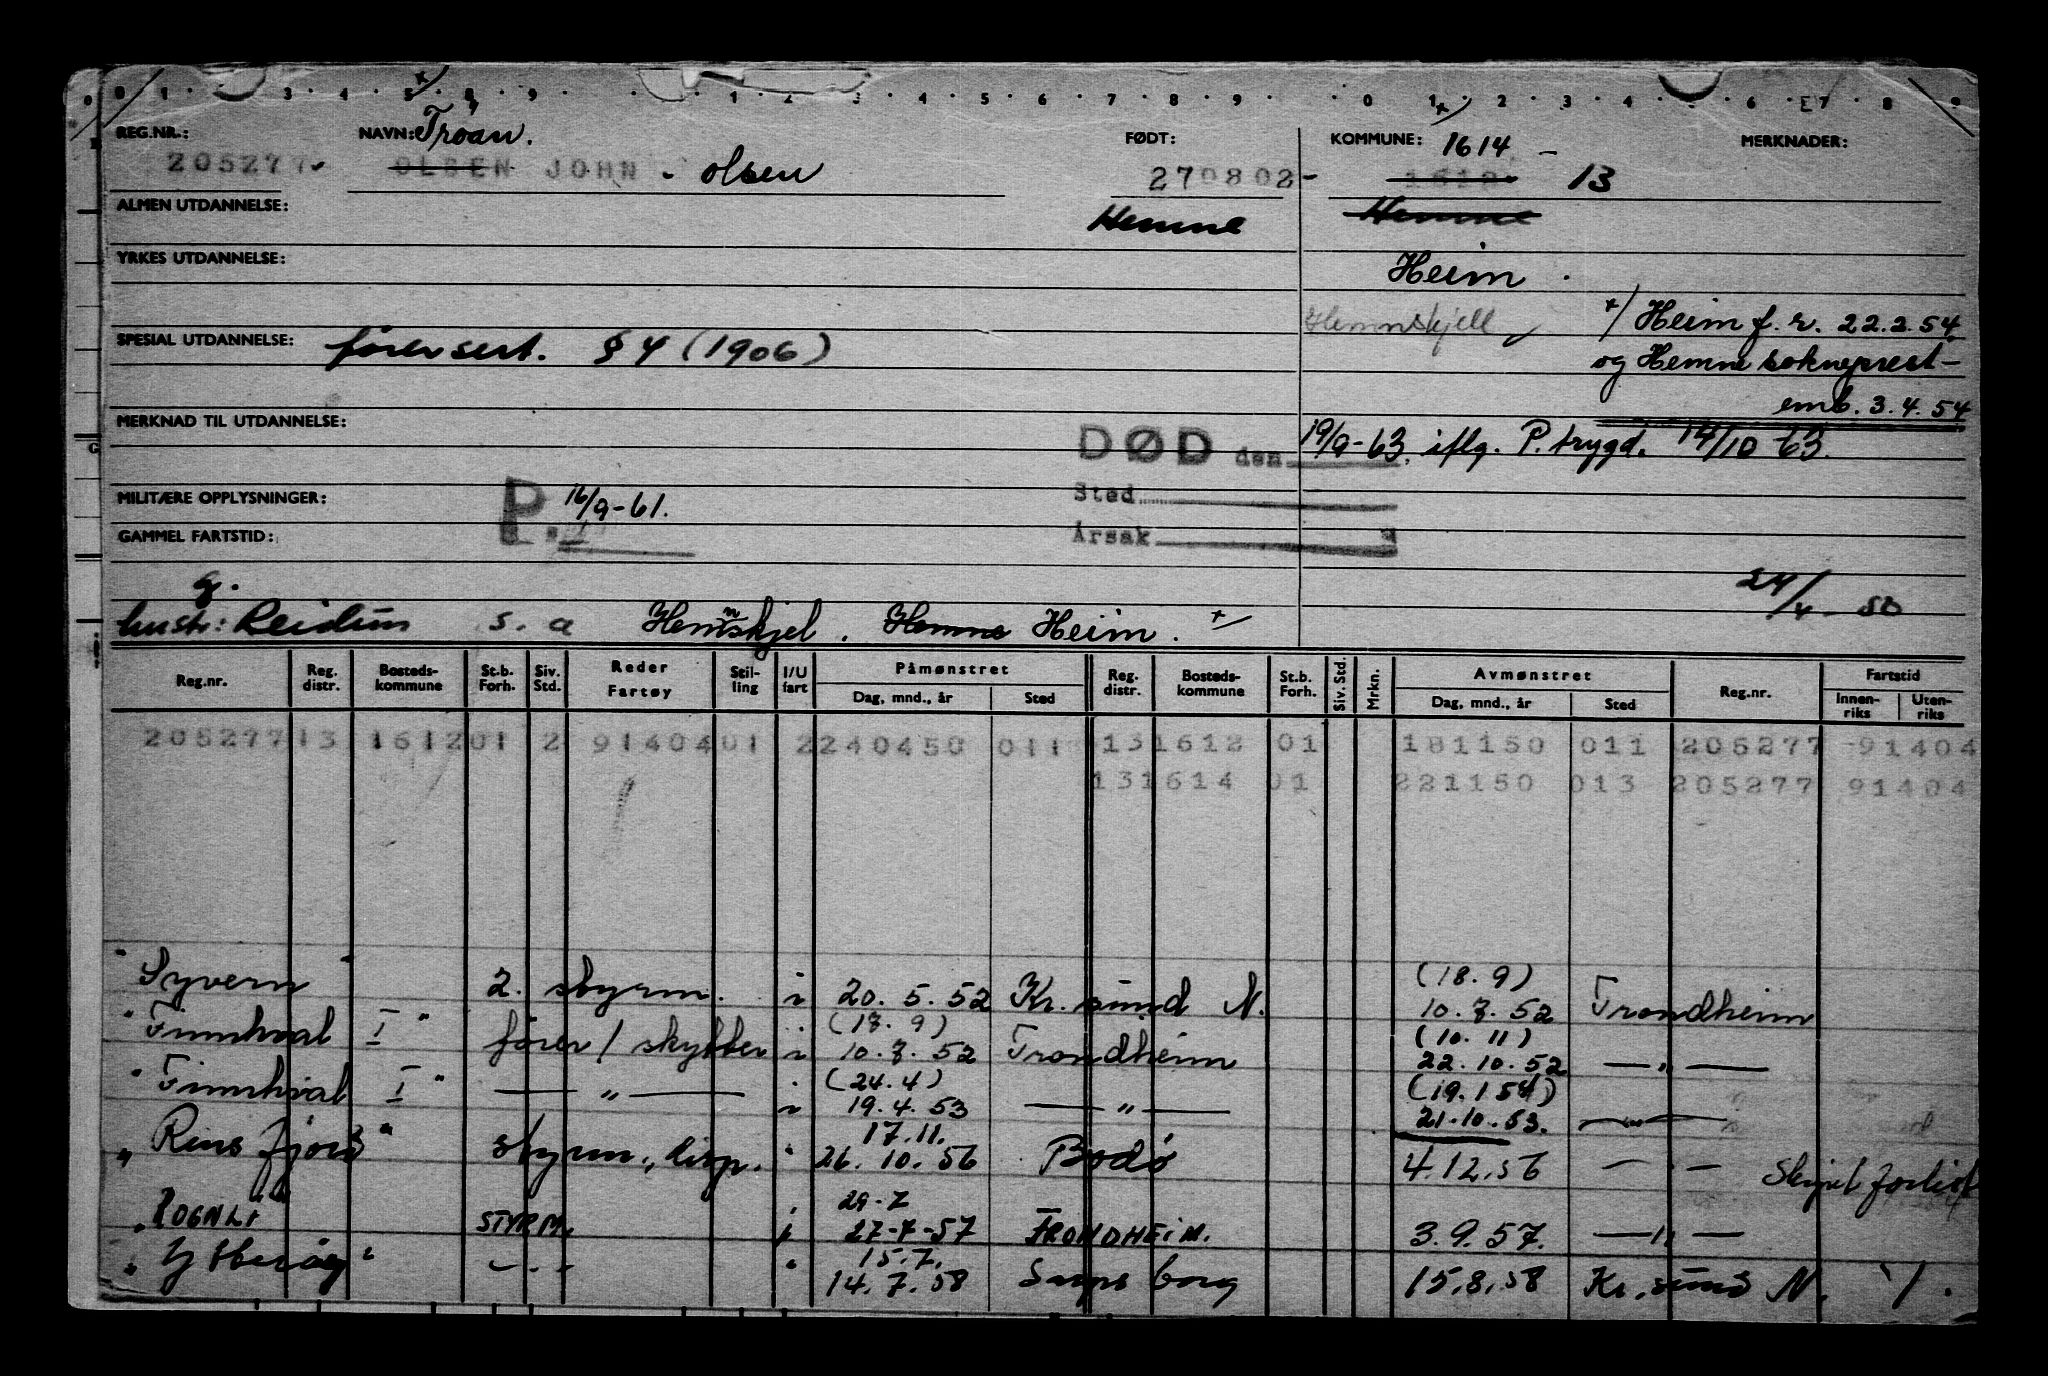 0 0 1 . . 3 . 4 . 5 . 8 . 9 . . . 1 . 2 . 3 . 4 . 5 . 6 . 7 . 8 . 9 . . 0 . 1 . 2 . 3 . 4 . . 6 . 7 . 8 .
REG.NR.: NAVN: Trøan. FØDT: KOMMUNE: 1614 - MERKNADER:
205277 OLSEN JOHN - Olsen 270802- 1612 13
ALMEN UTDANNELSE: Hemne Hemne
YRKES UTDANNELSE: Heim .
Hemnskjell x/ Heim f. r. 22.2.54
SPESIAL UTDANNELSE: førersert. § 4 (1906) og Hemne sokneprest-
emb. 3.4.54
MERKNAD TIL UTDANNELSE: DØD den 19/9-63. iflg. P. trygd. 14/10-63.
MILITÆRE OPPLYSNINGER: P. 16/9-61. Sted
GAMMEL FARTSTID: Årsak
g. 24/4 - 50
hustr: Reidun s. a Hemnskjel . Hemne Heim . x/
Reg.nr. Reg. distr. Bosteds-kommune St.b. Forh. Siv. Std. Reder Fartøy Stil-ling I/U fart Påmønstret Reg. distr. Bosteds-kommune St.b. Forh. Siv. Std. Mrkn. Avmønstret Reg.nr. Fartstid
Dag, mnd., år Sted Dag, mnd., år Sted Innen-riks Uten-riks
205277 13 1612 01 2 91404 01 2 240450 011 13 1612 01 181150 011 205277 91404
13 1614 01 221150 013 205277 91404
" Syvern " 2. styrm. i 20.5.52 Kr.sund N. (18.9) 10.7.52 Trondheim
" Finnhval I " fører / skytter i (18.9) 10.7.52 Trondheim (10.11) 22.10.52 — " —
" Finnhval I " — " — i (24.4) 19.4.53 — " — (19.1 54) 21.10.53. — " —
" Rens fjord " styrm., disp. " 17.11. 26.10.56 Bodø 4.12.56 — " — Skipet forlist
" ROGNLI STYRM. i 29-7 27-7-57 TRONDHEIM. 3.9.57. — " —
" Ytterøy " — " — " 15.7. 14.7.58 Sarpsborg 15.8.58 Kr.sund N. ·/.